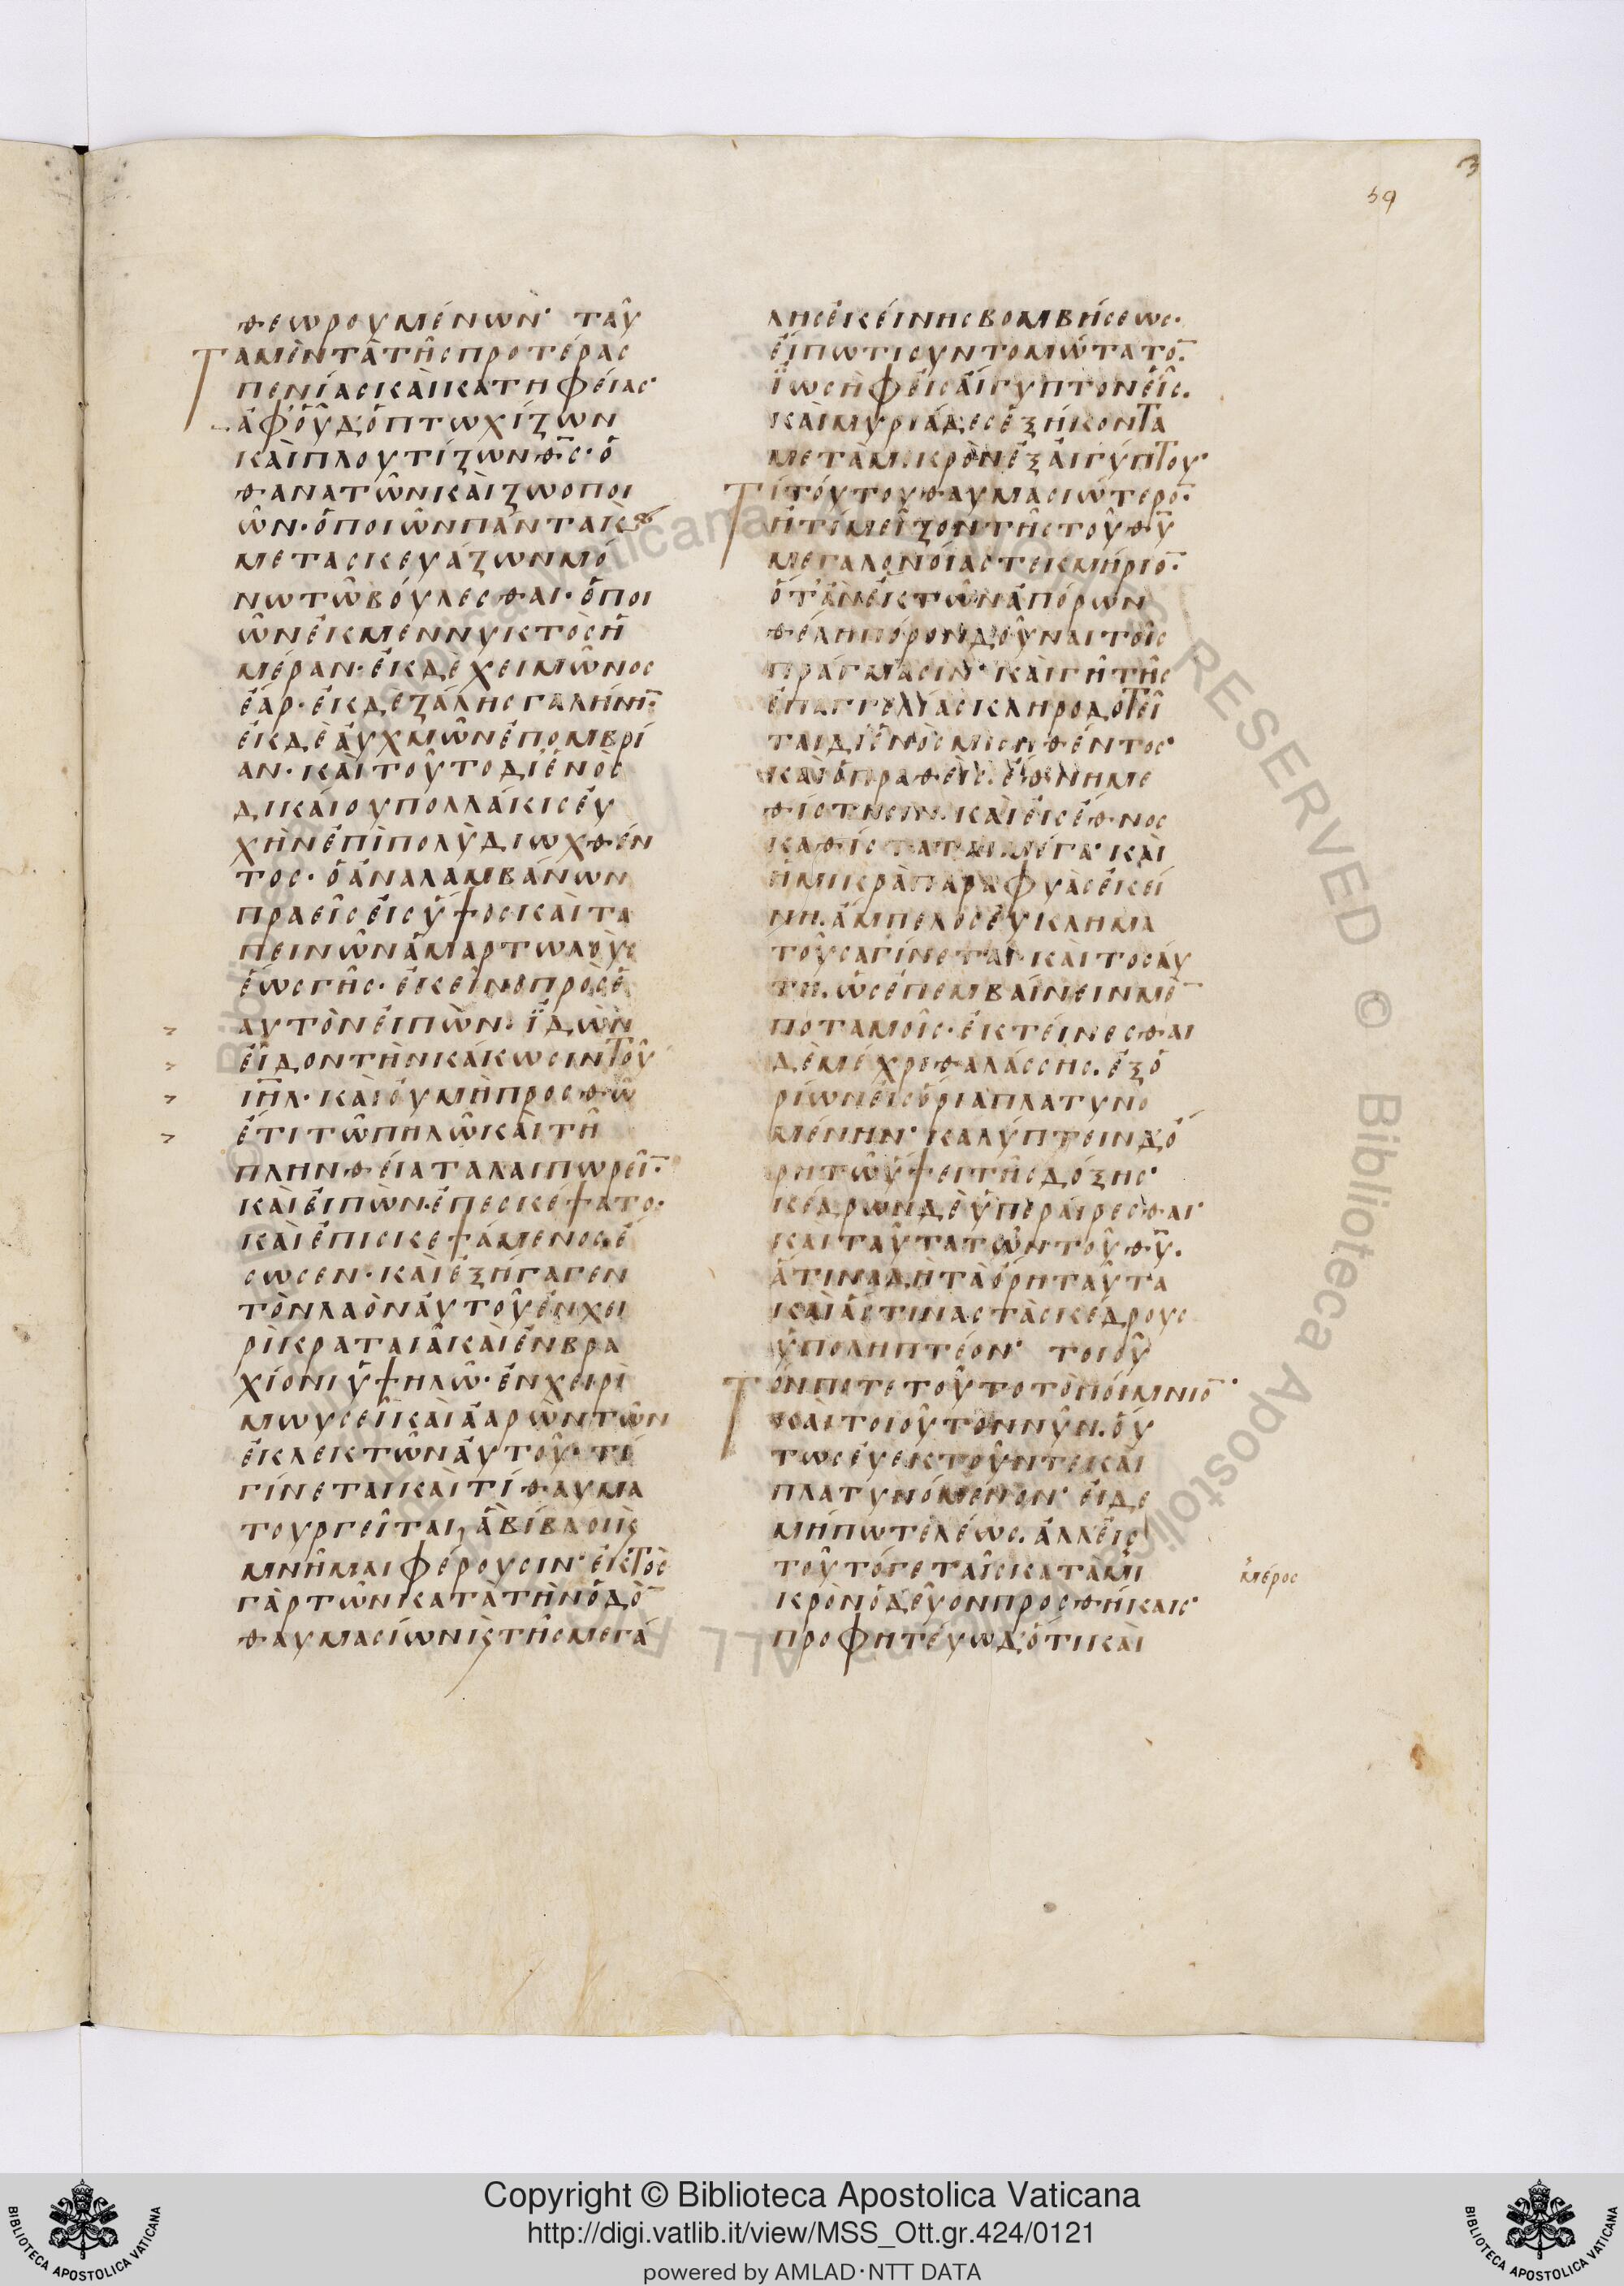 3
59
θεωρουμένων· ταῦ
τα μὲν τὰ τῆς προτέρας
πενίας καὶ κατηφείας·
ἀφ' οὗ δ' ὁ πτωχίζων
καὶ πλουτίζων θ̅ς̅· ὁ
θανατῶν καὶ ζωοποι
ῶν· ὁ ποιῶν πάντα κ(αὶ)
μετασκευάζων μό
νω τῶ βούλεσθαι· ὁ ποι
ῶν ἐκ μεν νυκτὸς ἡ
μέραν· ἐκ δὲ χειμῶνος
ἔαρ· ἐκ δὲ ζάλης γαλήνη̅·
ἐκ δὲ αὐχμῶν ἐπομβρί
αν· καὶ τοῦτο δι ἑνὸς
δικαίου πολλάκις εὐ
χὴν ἐπὶ πολὺ διωχθέν
τος· ὁ ἀναλαμβάνων
πραεῖς εἰς ὕψος καὶ τα
πεινῶν ἁμαρτωλοὺς
ἕως γῆς· ἐκεῖνο πρὸς ἑ
αυτὸν εἰπὼν· ἰδὼν
εἶδον τὴν κάκωσιν τοῦ
ι̅η̅λ̅· καὶ οὐ μὴ προσθῶ
ἔτι τῶ πηλῶ καὶ τῆ
πλινθεία ταλαιπωρεῖ̅·
καὶ εἰπὼν· ἐπεσκέψατο·
καὶ ἐπισκεψάμενος ἔ
σωσεν· καὶ ἐξήγαγεν
τὸν λαὸν αὐτοῦ ἐν χει
ρὶ κραταιᾶ καὶ ἐν βρα
χίονι ὑψηλῶ· ἐν χειρὶ
μωυσεῖ καὶ ἀαρὼν τῶν
ἐκλεκτῶν αὐτοῦ· τί
γίνεται καὶ τί θαυμα
τουργεῖται, ἃ βίβλοι κ(αὶ)
μνῆμαι φέρουσιν· ἐκτὸς
γὰρ τῶν κατὰ τὴν ὁδὸ̅
θαυμασίων κ(αὶ) τῆς μεγά
λης ἐκείνης βομβήσεως·
εἴπω τι συντομώτατο̅·
ἰωσὴφ εἰς αἴγυπτον εἷς.
καὶ μυριάδες ἑξήκοντα
μετὰ μικρὸν ἐξ αἰγύπτου·
τί τούτου θαυμασιώτερο̅·
ἢ τί μεῖζον τῆς τοῦ θ̅υ̅
μεγαλονοίας τεκμήριο̅·
ὅτ' ἂν ἐκ τῶν ἀπόρων
θέλη πόρον δοῦναι τοῖς
πράγμασιν· καὶ γῆ τῆς
ἐπαγγελίας κληροδοτεῖ
ται δι ἑνὸς μισηθέντος·
καὶ ὁ πραθεὶς. ἔθνη με
θίστησιν. καὶ εἰς ἔθνος
καθίσταται μέγα· καὶ
ἡ μικρὰ παραφυὰς ἐκεί
νη. ἄμπελος εὐκλημα
τοῦσα γίνεται· καὶ τοσαύ
τη. ὡς ἐπεμβαίνειν με̅
ποταμοῖς· ἐκτείνεσθαι
δὲ μέχρι θαλάσσης. ἐξ ὁ
ρίων εἰς ὅρια πλατυνο
μένην· καλύπτειν δ' ὄ
ρη τῶ ὕψει τῆς δόξης·
κέδρων δὲ ὑπεραίρεσθαι·
καὶ ταῦτα τῶν τοῦ θ̅υ̅.
ἅτινα δὴ τὰ ὄρη ταῦτα
καὶ ἅστινας τὰς κέδρους
ὑποληπτέον· τοιοῦ
τόν ποτε τοῦτο τὸ ποίμνιο̅·
καὶ τοιοῦτον νῦν. οὕ
τως εὐεκτοῦν τε καὶ
πλατυνόμενον· εἰ δε
μήπω τελέως. ἀλλ εἰς
τοῦτό γε ταῖς κατὰ μι
κρὸν ὁδεῦον προσθήκαις·
προφητεύω δ' ὅτι καὶ
μέρος
Copyright © Biblioteca Apostolica Vaticana
http://digi.vatlib.it/view/MSS_Ott.gr.424/0121
powered by AMLAD·NTT DATA